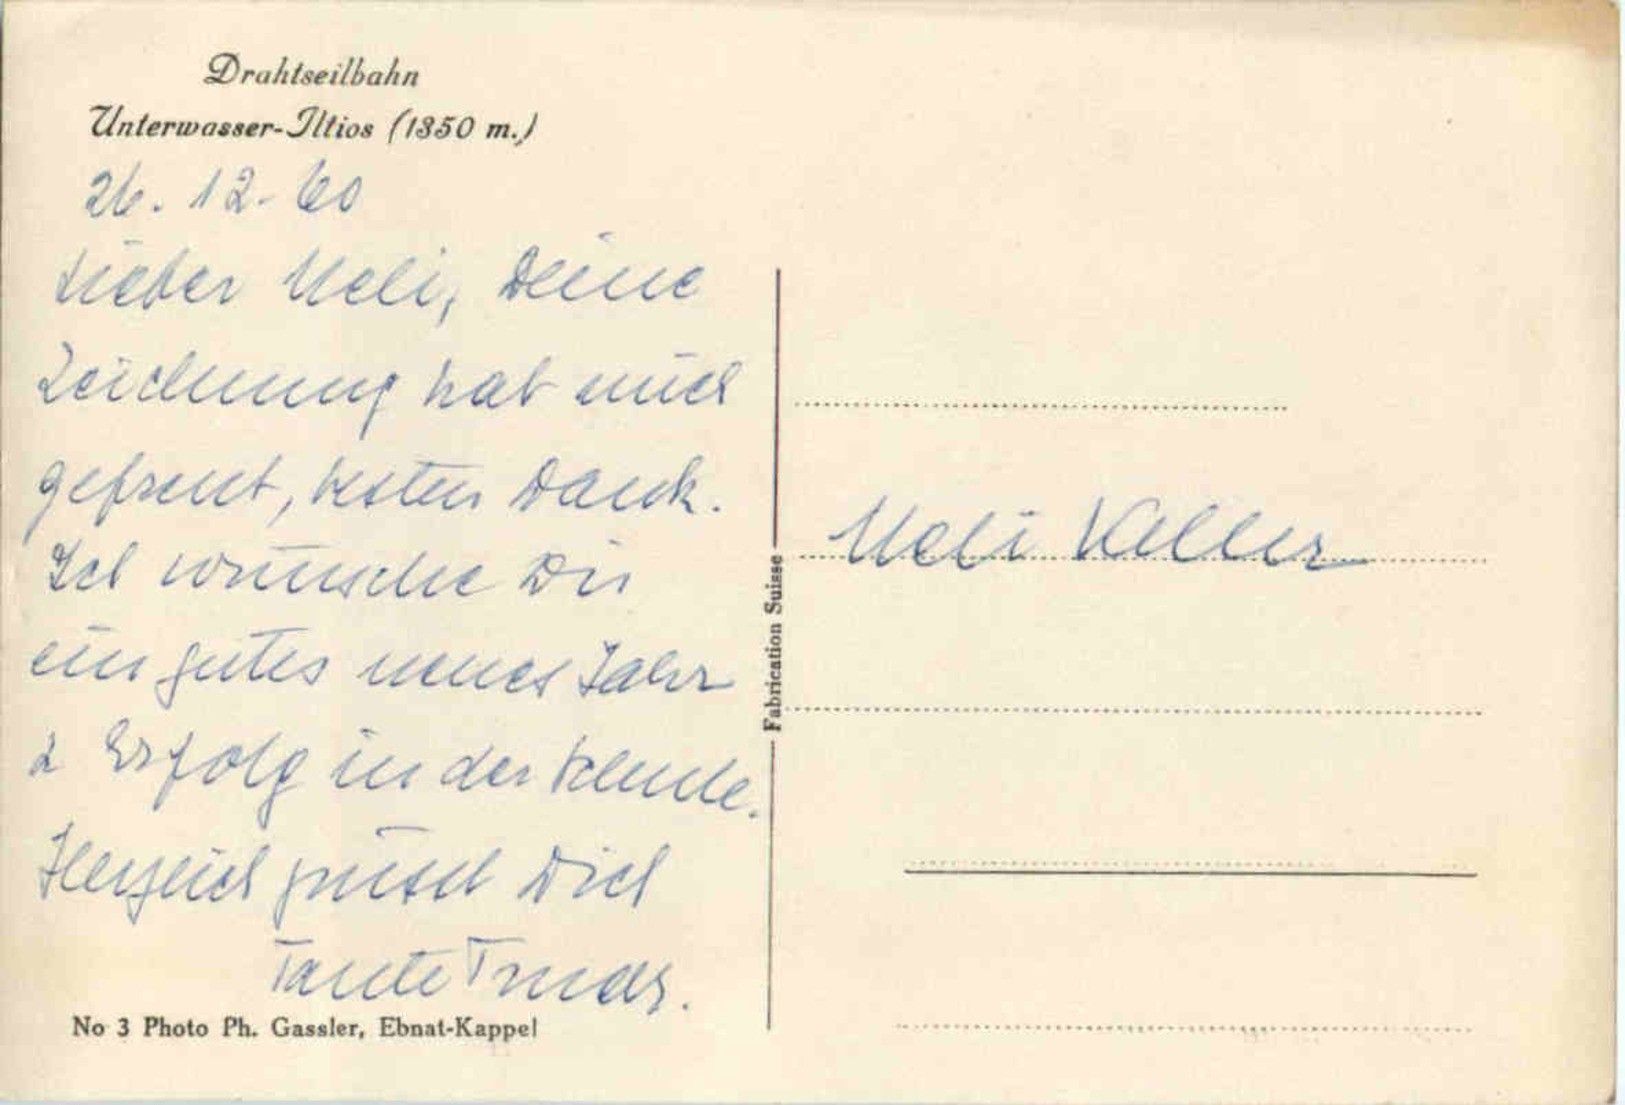 Drahtseilbahn
Unterwasser-Iltios (1350 m.)
26. 12. 60
Lieber Ueli, Deine
Zeichnung hat mich
gefreut, besten Dank.
Ich wünsche Dir
ein gutes neues Jahr
& Erfolg in der Schule.
Herzlich grüsst Dich
Tante
No 3 Photo Ph. Gassler, Ebnat-Kappel
Fabrication Suisse
Ueli Keller